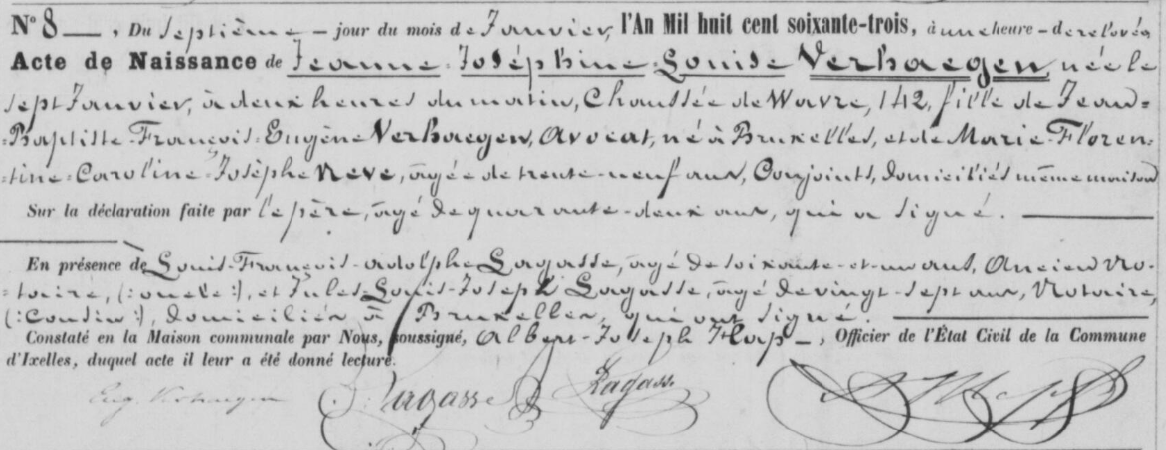 N° 8 , Du Septième jour du mois de Janvier, l'An Mil huit cent soixante-trois, à une heure de relevée,
Acte de Naissance de Jeanne-Joséphine-Louise Verhaegen, née le
sept Janvier, à deux heures du matin, Chaussée de Wavre, 142, fille de Jean=
=Baptiste-François-Eugène Verhaegen, Avocat, né à Bruxelles, et de Marie-Floren=
=tine-Caroline-Josèphe Neve, agée de trente-neuf ans, Conjoints, domiciliés même maison
Sur la déclaration faite par le père, agé de quarante-deux ans, qui a signé.
En présence de Louis-François-Adolphe Lagasse, agé de soixante-et-un ans, Ancien No=
=taire, (: oncle :), et Jules-Louis-Joseph Lagasse, agé de vingt-sept ans, Notaire,
(: Cousin :), domiciliés à Bruxelles, qui ont signé.
Constaté en la Maison communale par Nous, soussigné, Albert-Joseph Hap , Officier de l'État Civil de la Commune
d'Ixelles, duquel acte il leur a été donné lecture.
Eug. Verhaegen Lagasse Lagasse AHap